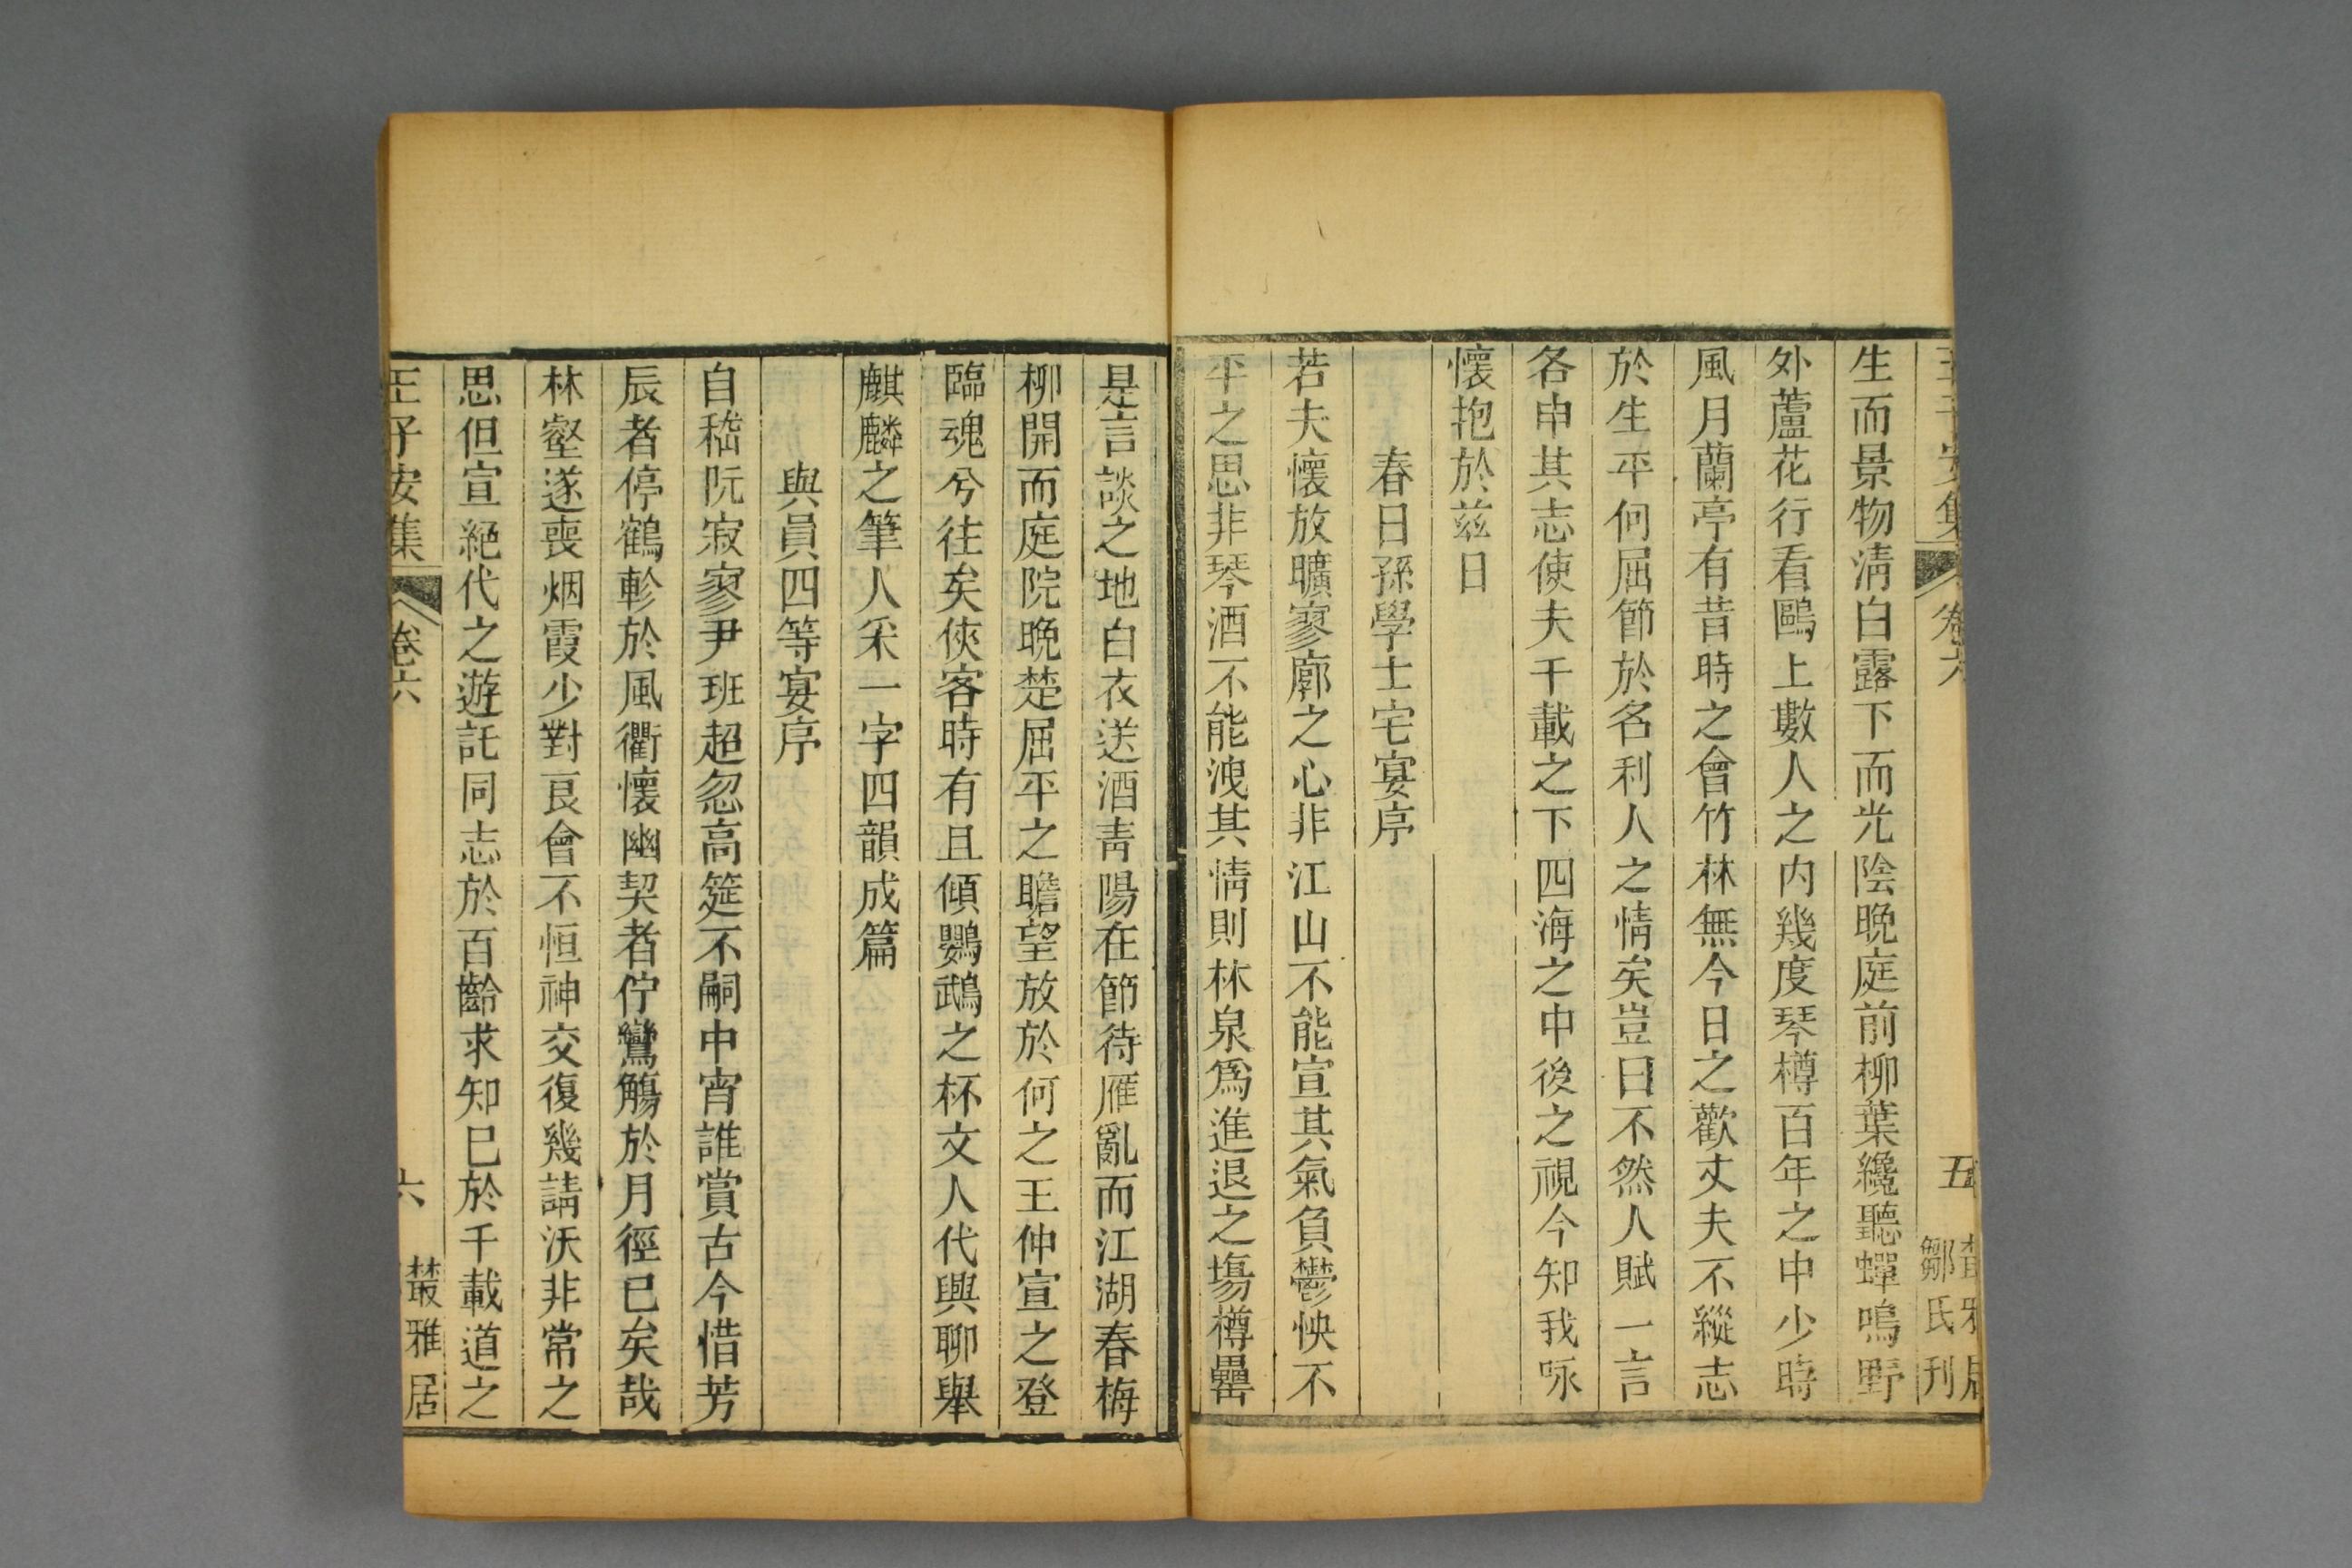 王子安集 卷六 五 鄒氏刊
生而景物淸白露下而光陰晩庭前柳葉纔聽蟬鳴野
外蘆花行看鷗上數人之内幾度琴樽百年之中少時
風月蘭亭有昔時之會竹林無今日之歡丈夫不縱志
於生平何屈節於名利人之情矣豈曰不然人賦一言
各申其志使夫千載之下四海之中後之視今知我咏
懷抱於兹日
春日孫學士宅宴序
若夫懷放曠寥廓之心非江山不能宣其氣負鬱怏不
平之思非琴酒不能洩其情則林泉爲進退之塲樽罍
是言談之地白衣送酒靑陽在節待雁亂而江湖春梅
柳開而庭院晩楚屈平之瞻望放於何之王仲宣之登
臨魂兮往矣俠客時有且傾鸚鵡之杯文人代興聊舉
麒麟之筆人采一字四韻成篇
與員四等宴序
自嵇阮寂寥尹班超忽高筵不嗣中宵誰賞古今惜芳
辰者停鶴軫於風衢懷幽契者佇鸞觴於月徑已矣哉
林壑遂喪烟霞少對良會不恒神交復幾請沃非常之
思但宣絕代之遊託同志於百齡求知已於千載道之
王子安集 卷六 六 叢雅居